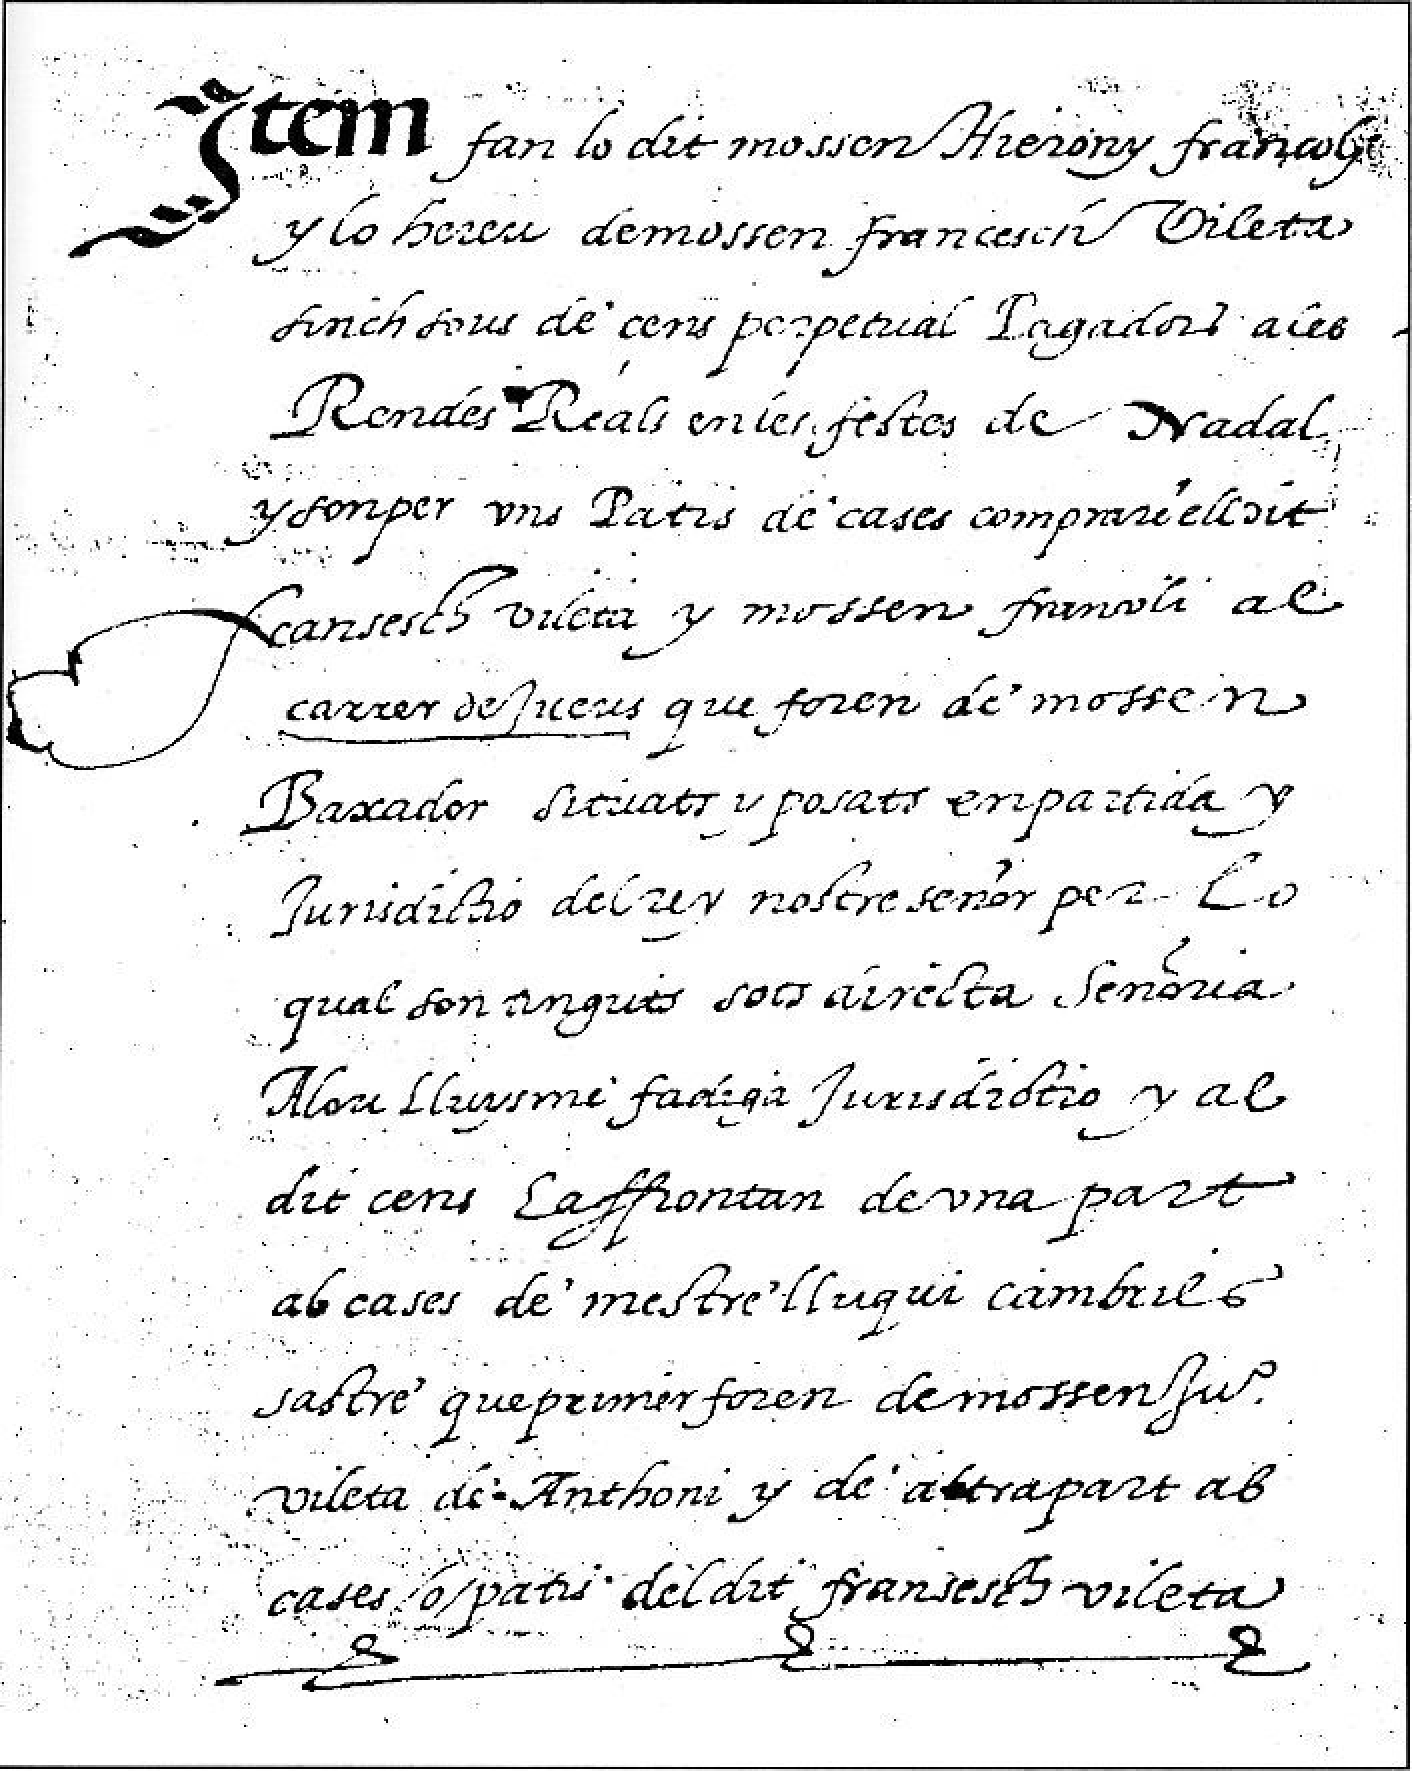 Item fan lo dit mossen Hierony francolí
y lo hereu de mossen francesch Vileta
sinch sous de cens perpetual Pagadors a les
Rendes Reals en les festes de Nadal
y son per vns Patis de cases comprau ell dit
francesch vileta y mossen francoli al
carrer de Jueus que foren de mossen
Baxador situats y posats en partida y
Jurisdictio del rey nostre senor per lo
qual son tinguts sots directa Senoria
Alou Lluysme fadiga Jurisdictio y al
dit cens Eaffrontan de vna part
ab cases de mestre lluqui cambrils
sastre que primer foren de mossen Juº.
vileta de Anthoni y de altra part ab
cases /o/ patis del dit fransesch vileta